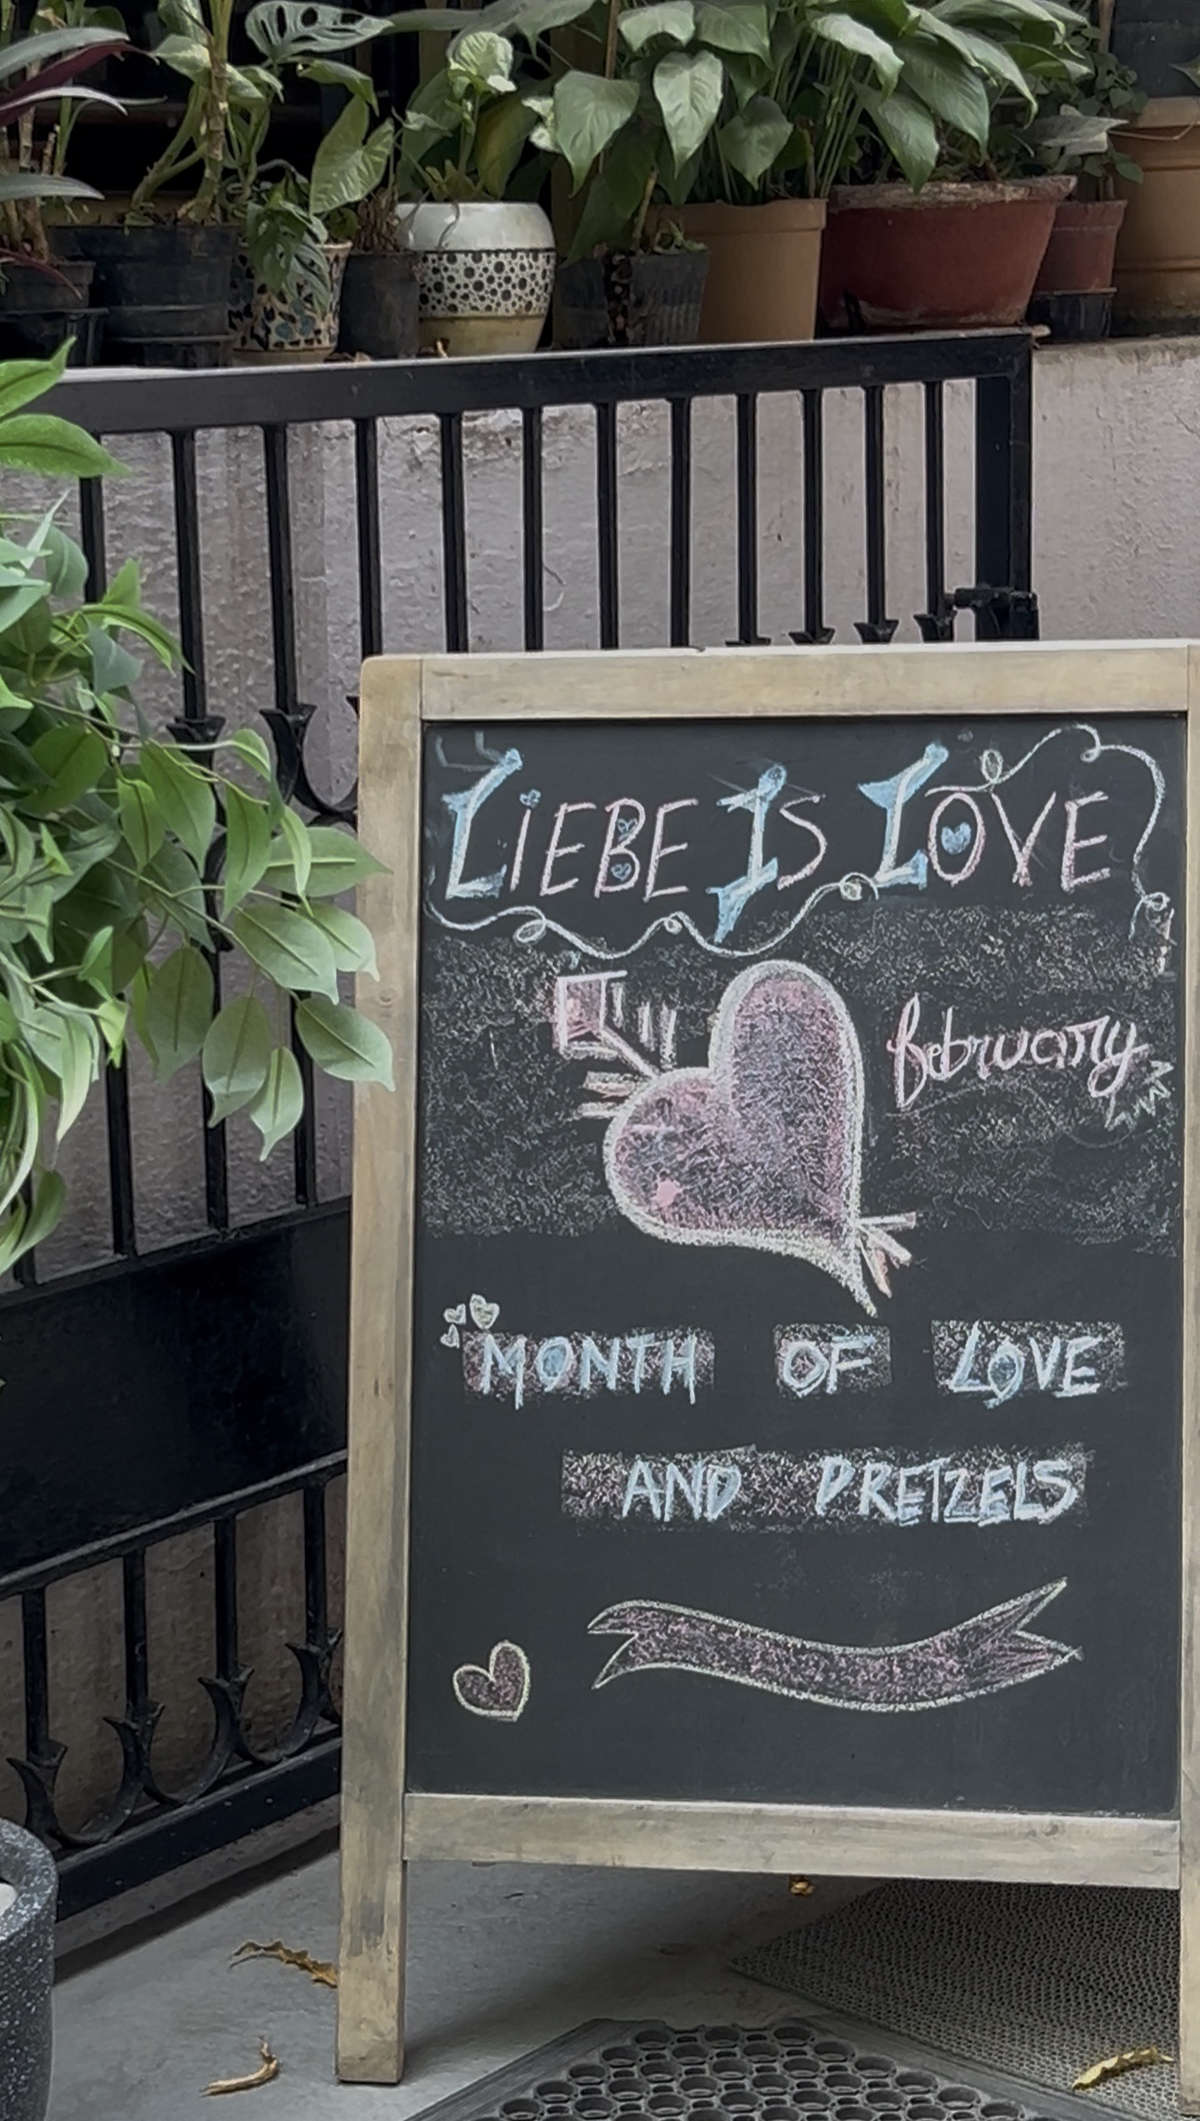 LiEBE IS LOVE
february
MONTH OF LOVE
AND PRETZELS